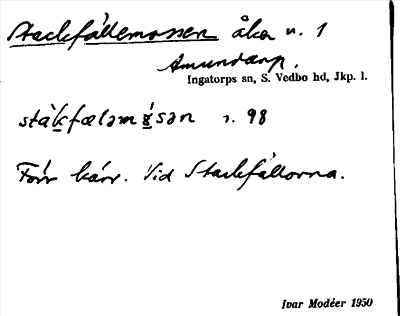 Stackfällemossen åker n. 1
Amundarp.
Ingatorps sn, S. Vedbo hd, Jkp. l.
s. 98
Förr kärr. Vid Stackfällorna.
Ivar Modéer 1950